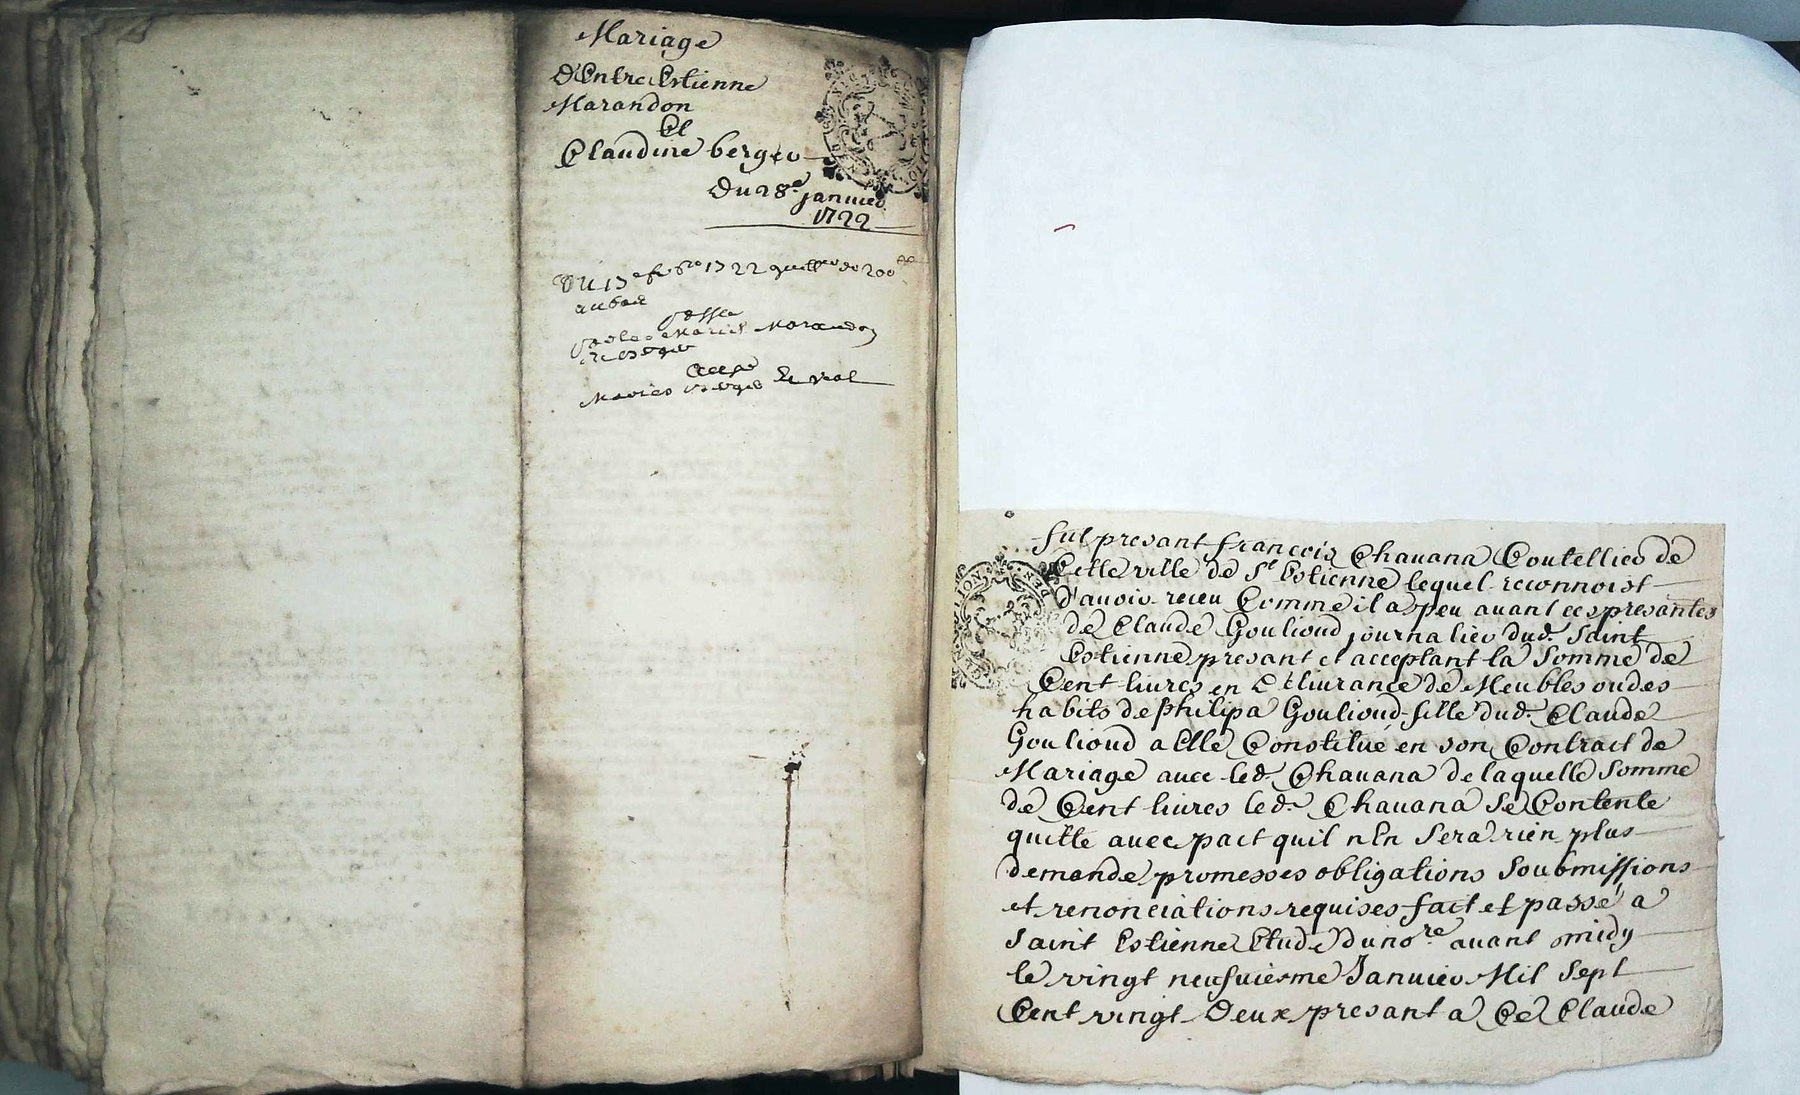 Mariage
d'Entre Estienne
Marandon
Et
Claudine berger
Du 28e janvier
1722
1722
200
Marandon
fut presant françois Chavana Coutellier de
Cette ville de St Estienne lequel reconnoist
d'avoir receu Comme il a peu avant ces presantes
de Claude Goulioud journalier dud. Saint
Estienne presant et acceptant la Somme de
Cent livres en délivrance de Meubles ou des
habits de philipa Goulioud fille dud. Claude
Goulioud a Elle Constitué en son Contract de
Mariage avec led. Chavana de laquelle Somme
de Cent livres led. Chavana Se Contente
quitte avec pact quil n'En Sera rien plus
demande promesses obligations Soubmissions
et renonciations requises fait et passé a
Saint Estienne Etude du nore avant midy
le vingt neufviesme Janvier Mil Sept
Cent vingt Deux presant a Ce Claude